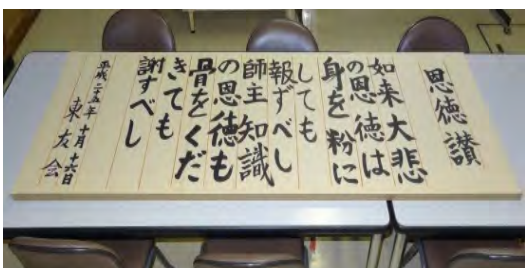 恩徳讃
如来大悲
の恩徳は
身を粉に
しても
報ずべし
師主知識
の恩徳も
骨をくだ
きても
謝すべし
平成二十五年十月十六日
東友会